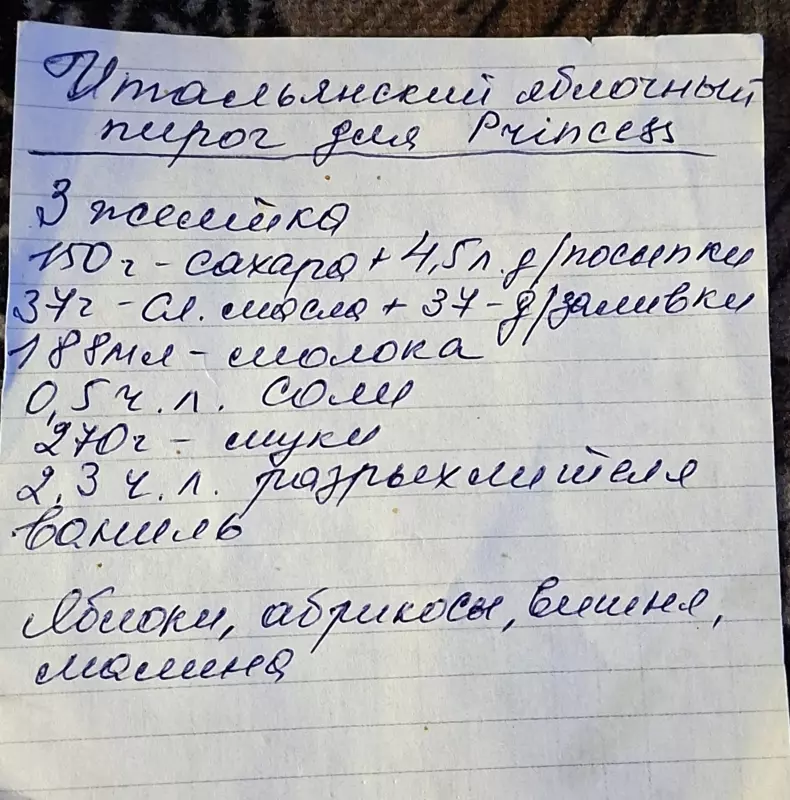 Итальянский яблочный
пирог для Princess
3 желтка
150 г - сахара + 4,5 л. д/посыпки
37 г - сл. масла + 37 - д/заливки
188 мл - молока
0,5 ч. л. соли
270 г - муки
2,3 ч. л. разрыхлителя
ваниль
Яблоки, абрикосы, вишня,
малина